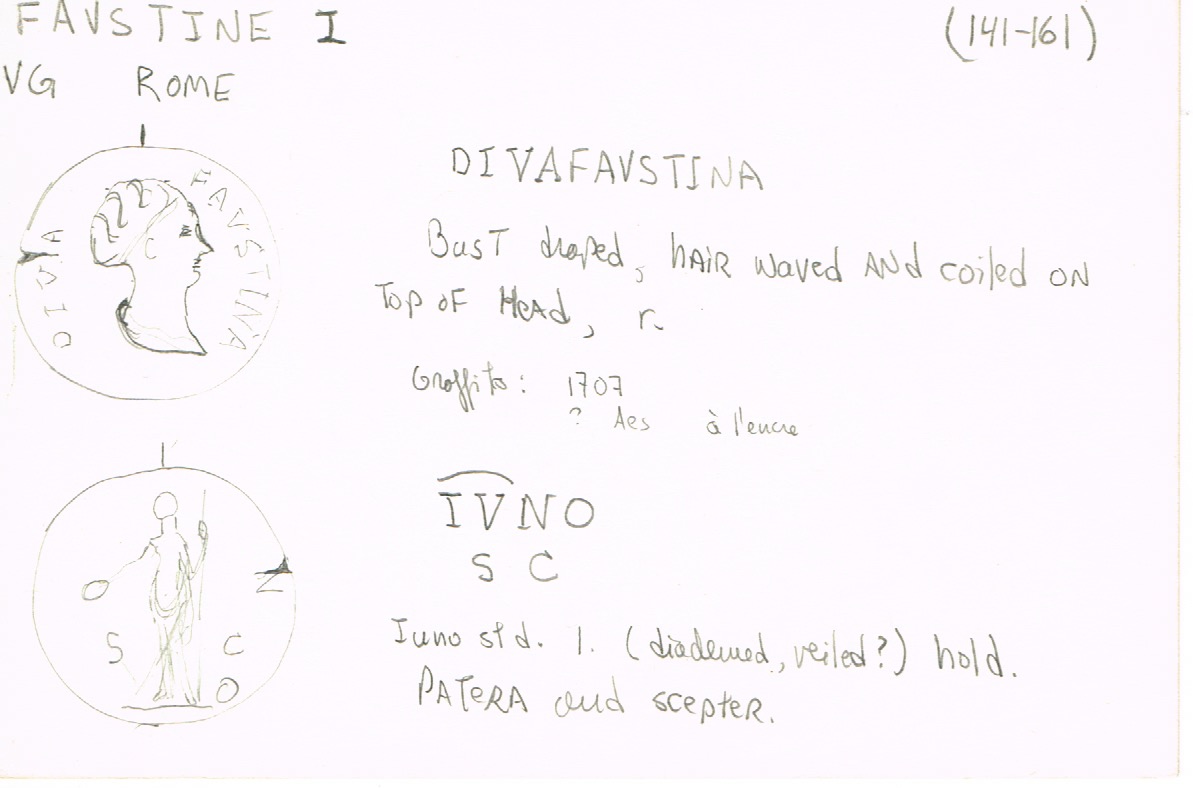 FAVSTINE I (141-161)
VG ROME
DIVA FAVSTINA
DIVAFAVSTINA
Bust draped, hAIR waved ANd coiled ON
Top of HeAd, r.
Graffito: 1707
? Aes à l'encre
IVNO
S C
N
S C
O
Iuno std. l. (diademed, veiled?) hold.
PATERA and scepteR.